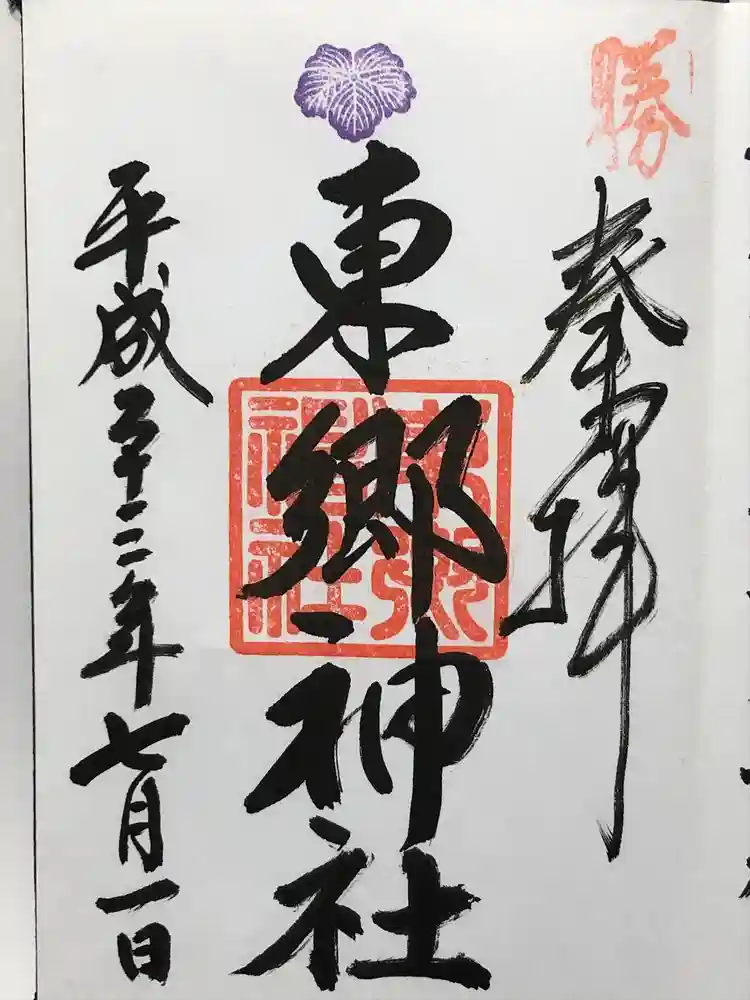 勝
奉拝
東郷神社
東郷
神社
平成 十 年七月一日